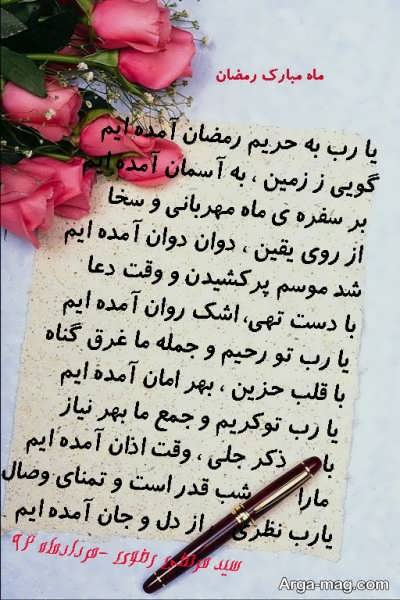 ماه مبارک رمضان
یا رب به حریم رمضان آمده ایم
گویی ز زمین ، به آسمان آمده ایم
بر سفره ی ماه مهربانی و سخا
از روی یقین ، دوان دوان آمده ایم
شد موسم پرکشیدن و وقت دعا
با دست تهی، اشک روان آمده ایم
یا رب تو رحیم و جمله ما غرق گناه
با قلب حزین ، بهر امان آمده ایم
یا رب توکریم و جمع ما بهر نیاز
با ذکر جلی ، وقت اذان آمده ایم
مارا شب قدر است و تمنای وصال
یارب نظری از دل و جان آمده ایم
سید مرتضی رضوی - مردادماه ۹۶
Arga-mag.com